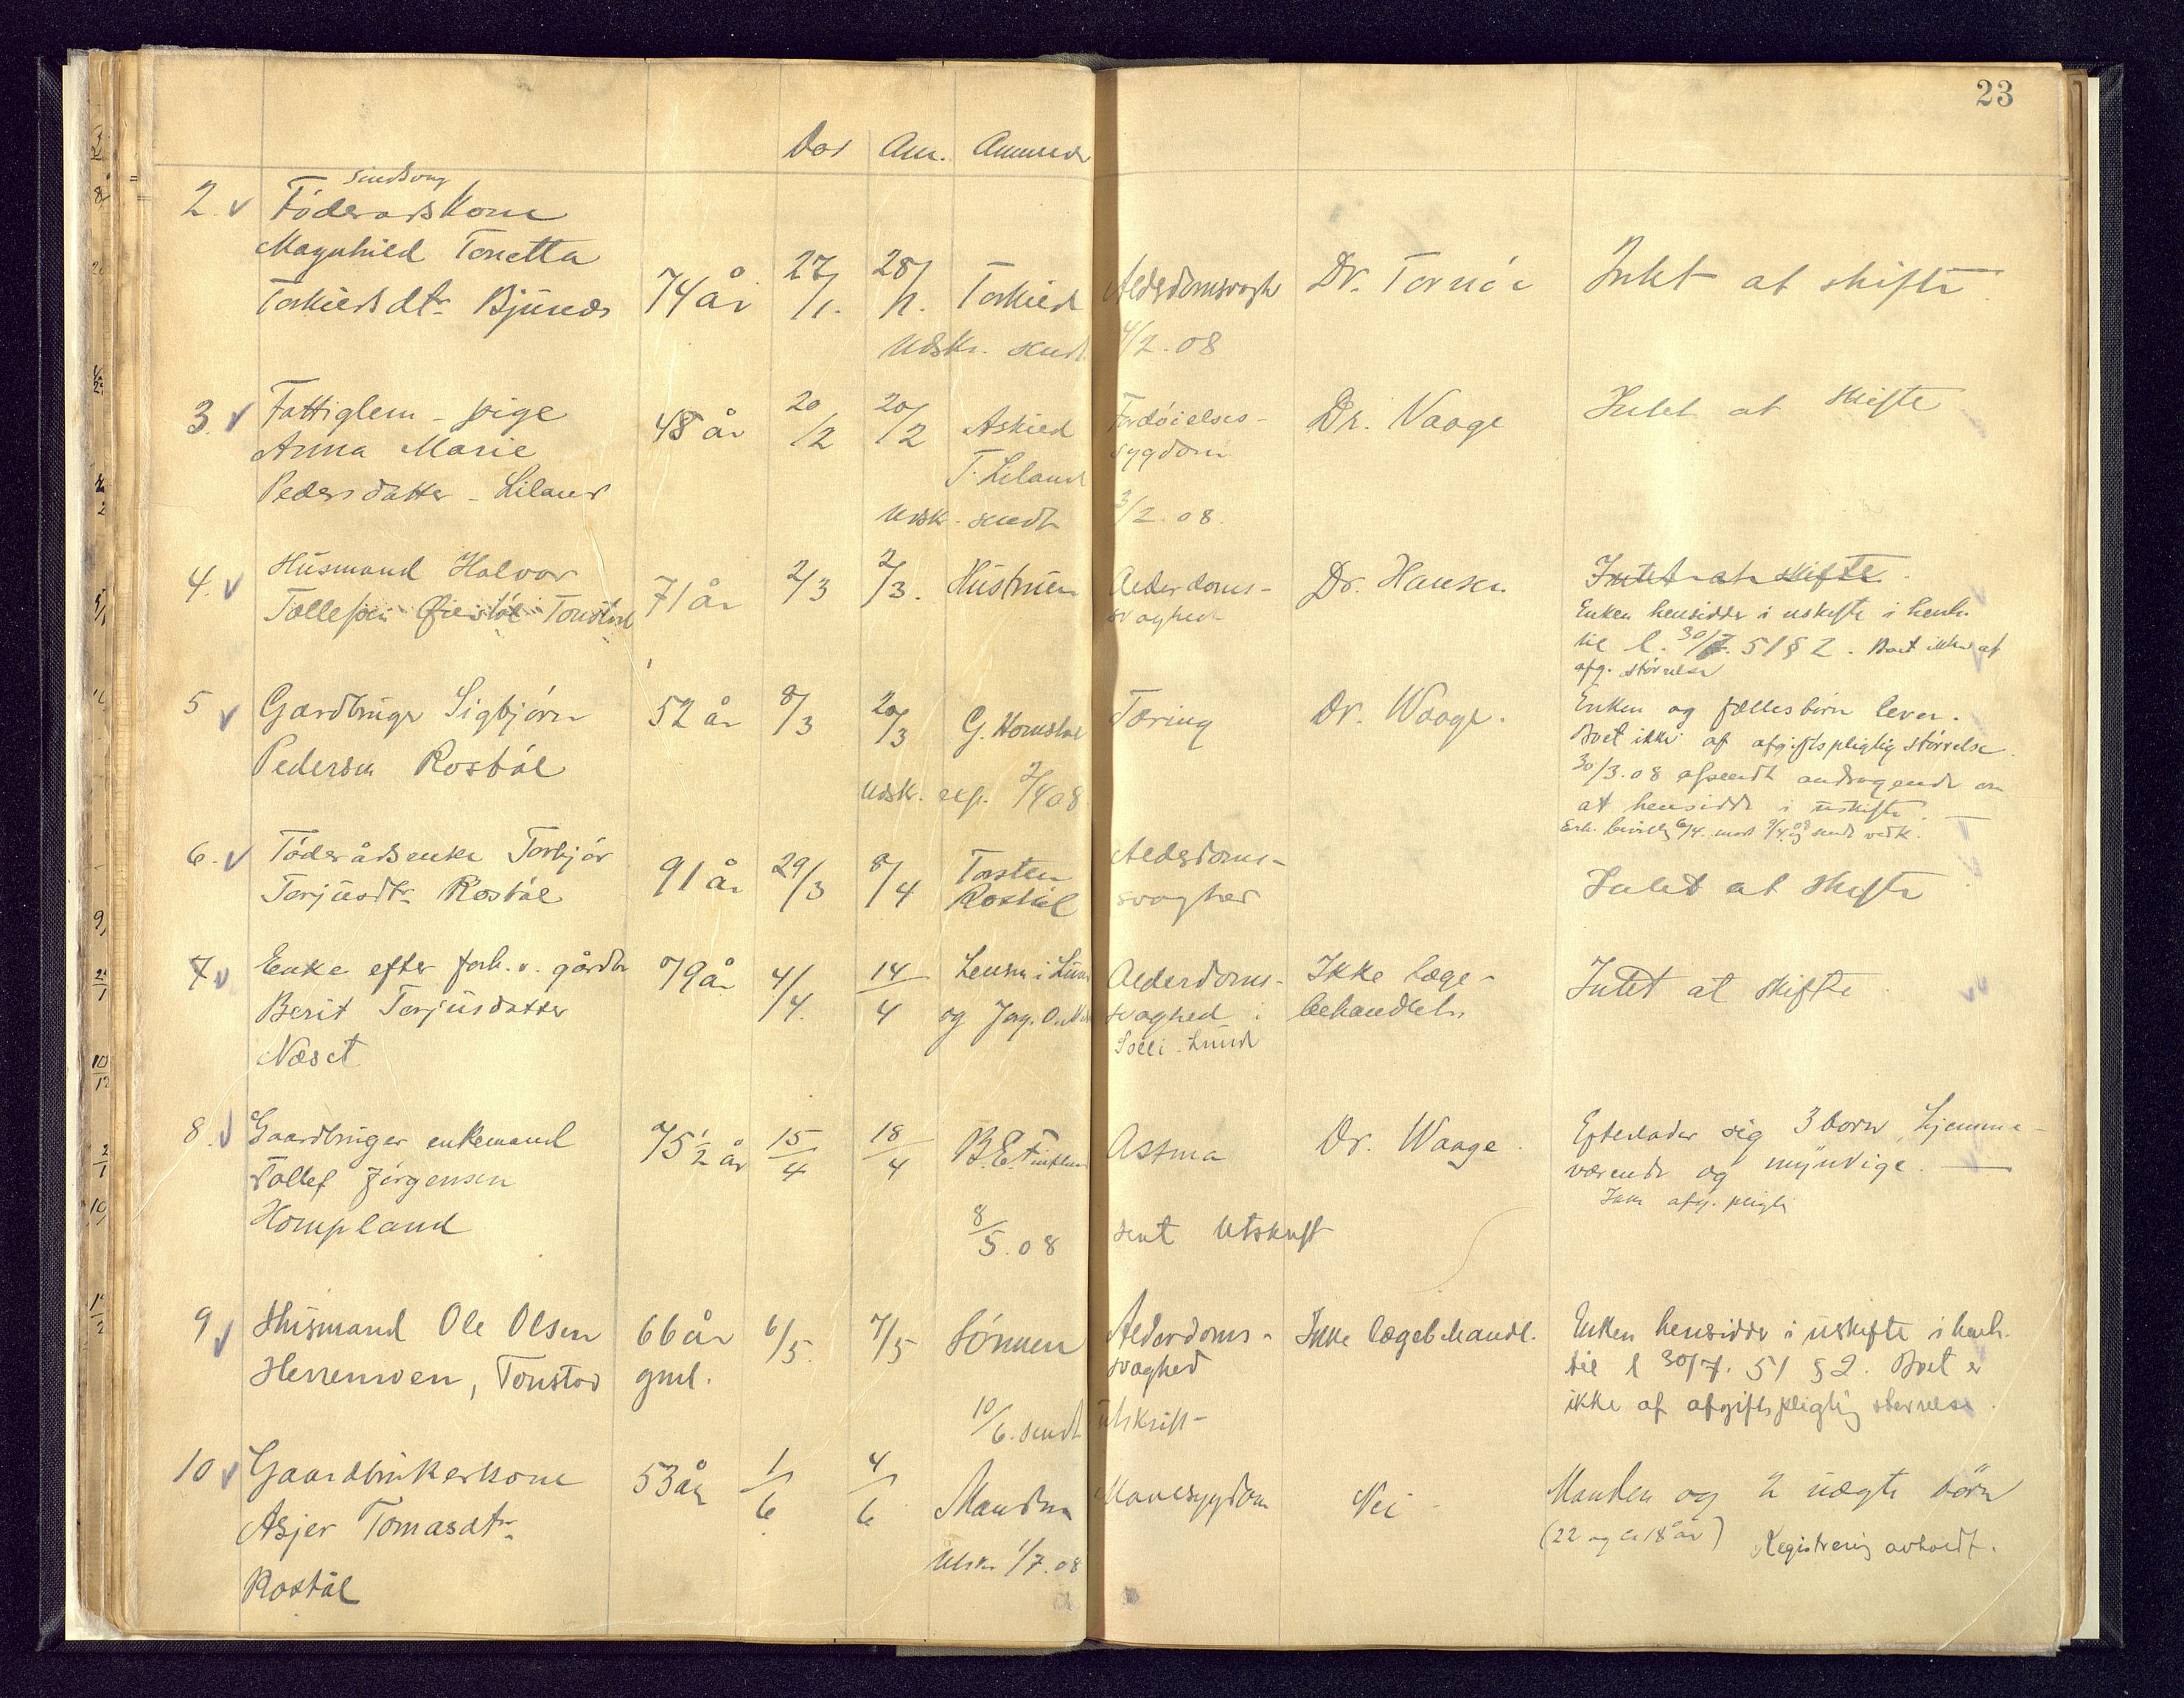 23
Død Anm. Anmelder
2. v Føderådskone 74 år 27/1. 28/1. Torkield Alderdomsvagh Dr. Tornøe Intet at skifte
Magnhild Tonetta
Torkieldsdtr Bjunes
Udskr. sendt 4/2.08
3. v Fattiglem - pige 48 år 20/2 20/2 Askield Fordøielses- Dr. Vaage Intet at skifte
Anna Marie T. Liland sygdom
Pedersdatter - Liland
Udsk. sendt 3/2.08.
4. v Husmand Halvor 71 år 2/3 2/3. Hustruen Alderdoms- Dr. Hansen Intet at skifte.
Tollefsen Øiestøl Tonstad svaghed Enken hensidder i uskifte i henh.
til l. 30/7. 51 § 2. Boet ikke af
afg. størrelse
5 v Gardbruger Sigbjørn 52 år 8/3 20/3 G. Homstøl Tæring Dr. Waage. Enken og fællesbørn lever.
Pedersen Rostøl Boet ikke af afgiftspligtig størrelse.
Udskr. exp. 2/4 08 30/3.08 afsendt andragende om
at hensidde i uskifte.
6. v Føderådsenke Torbjør 91 år 29/3 8/4 Torsten Alderdoms- Intet at skifte
Terjusdtr Rostøl Rostøl svaghed
7 v Enke efter forh. v. gårdbr 79 år 4/4. 14/4 Lensm i Lund Alderdoms- Ikke læge- Intet at skifte.
Berit Terjusdatter og Jørg. svaghed i behandlet.
Næset Lund
8. v Gaardbruger enkemand 75 1/2 år 15/4 18/4 B.E. Fintland Astma Dr. Waage. Efterlader sig 3 børn, hjemme-
Tollef Jørgensen værende og myndige.
Hompland Ikke afg. pligti
8/5.08 sent Utskrift
9 v Husmand Ole Olsen 66 år 6/5. 7/5 Sønnen Alderdoms- Ikke lægebehandl. Enken hensidder i uskifte i henh.
Herremoen, Tonstad gml. svaghed til l 30/7. 51 § 2. Boet er
10/6. sendt utskrift- ikke af afgiftspligtig størrelse.
10 v Gaardbrukerkone 53 år 1/6 4/6 Manden Mavesygdom Nei Manden og 2 uægte børn
Asjer Tomasdtr (22 og 18 år) Registrering avholdt.
Rostøl Utskr 1/7.08